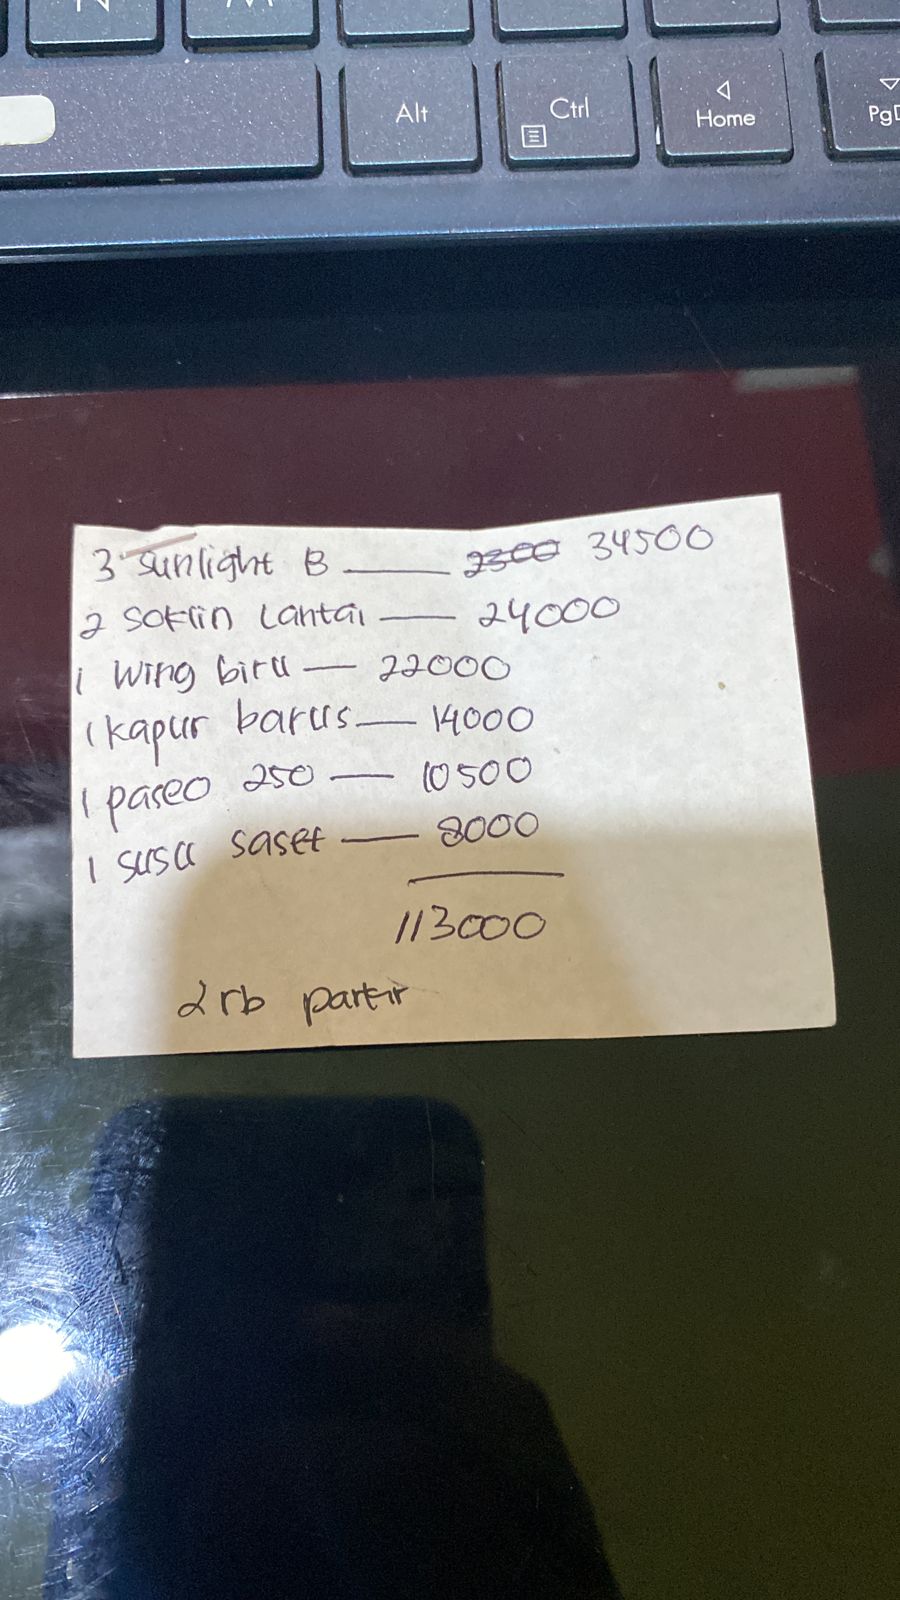 Alt
Ctrl
Home
3 Sunlight B — 2300 34500
2 Soklin Lantai — 24000
1 Wing biru — 22000
1 kapur barus — 14000
1 paseo 250 — 10500
1 susu saset — 8000
113000
2 rb parkir